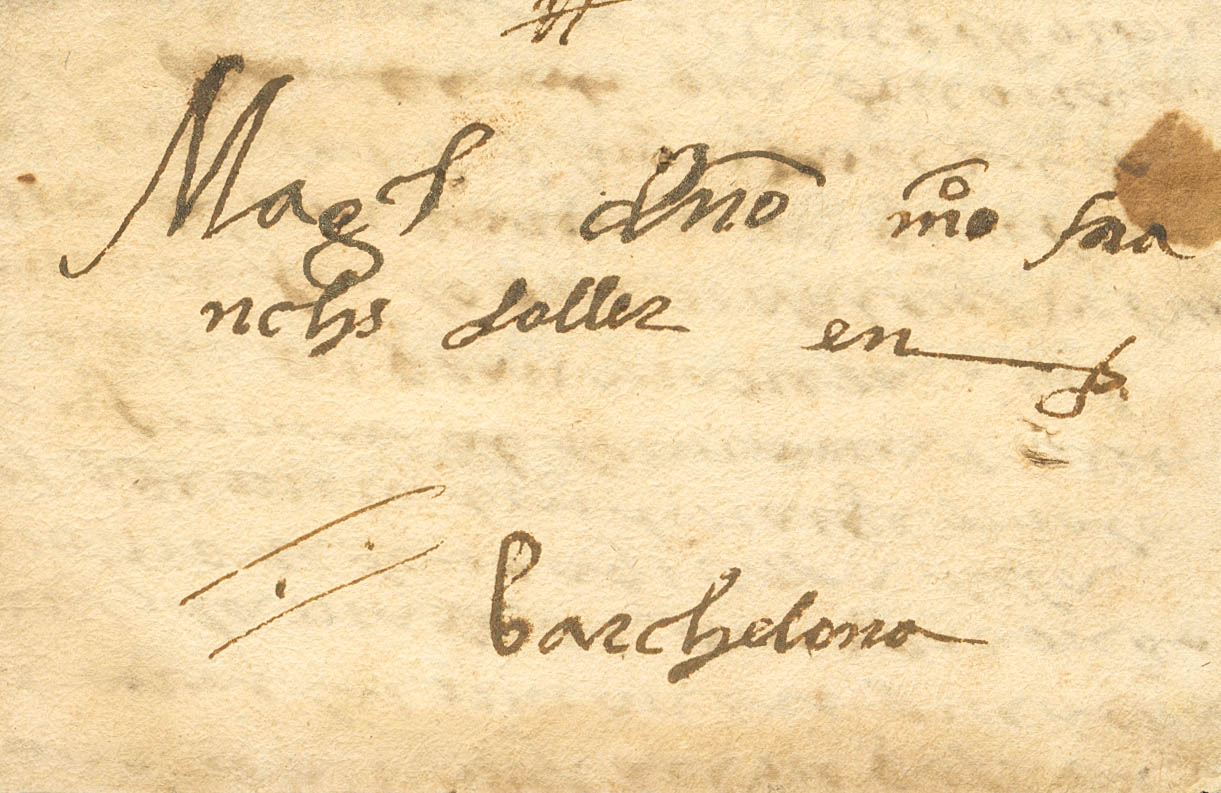 Magf dno mo fra
nchs soller en
barchelona